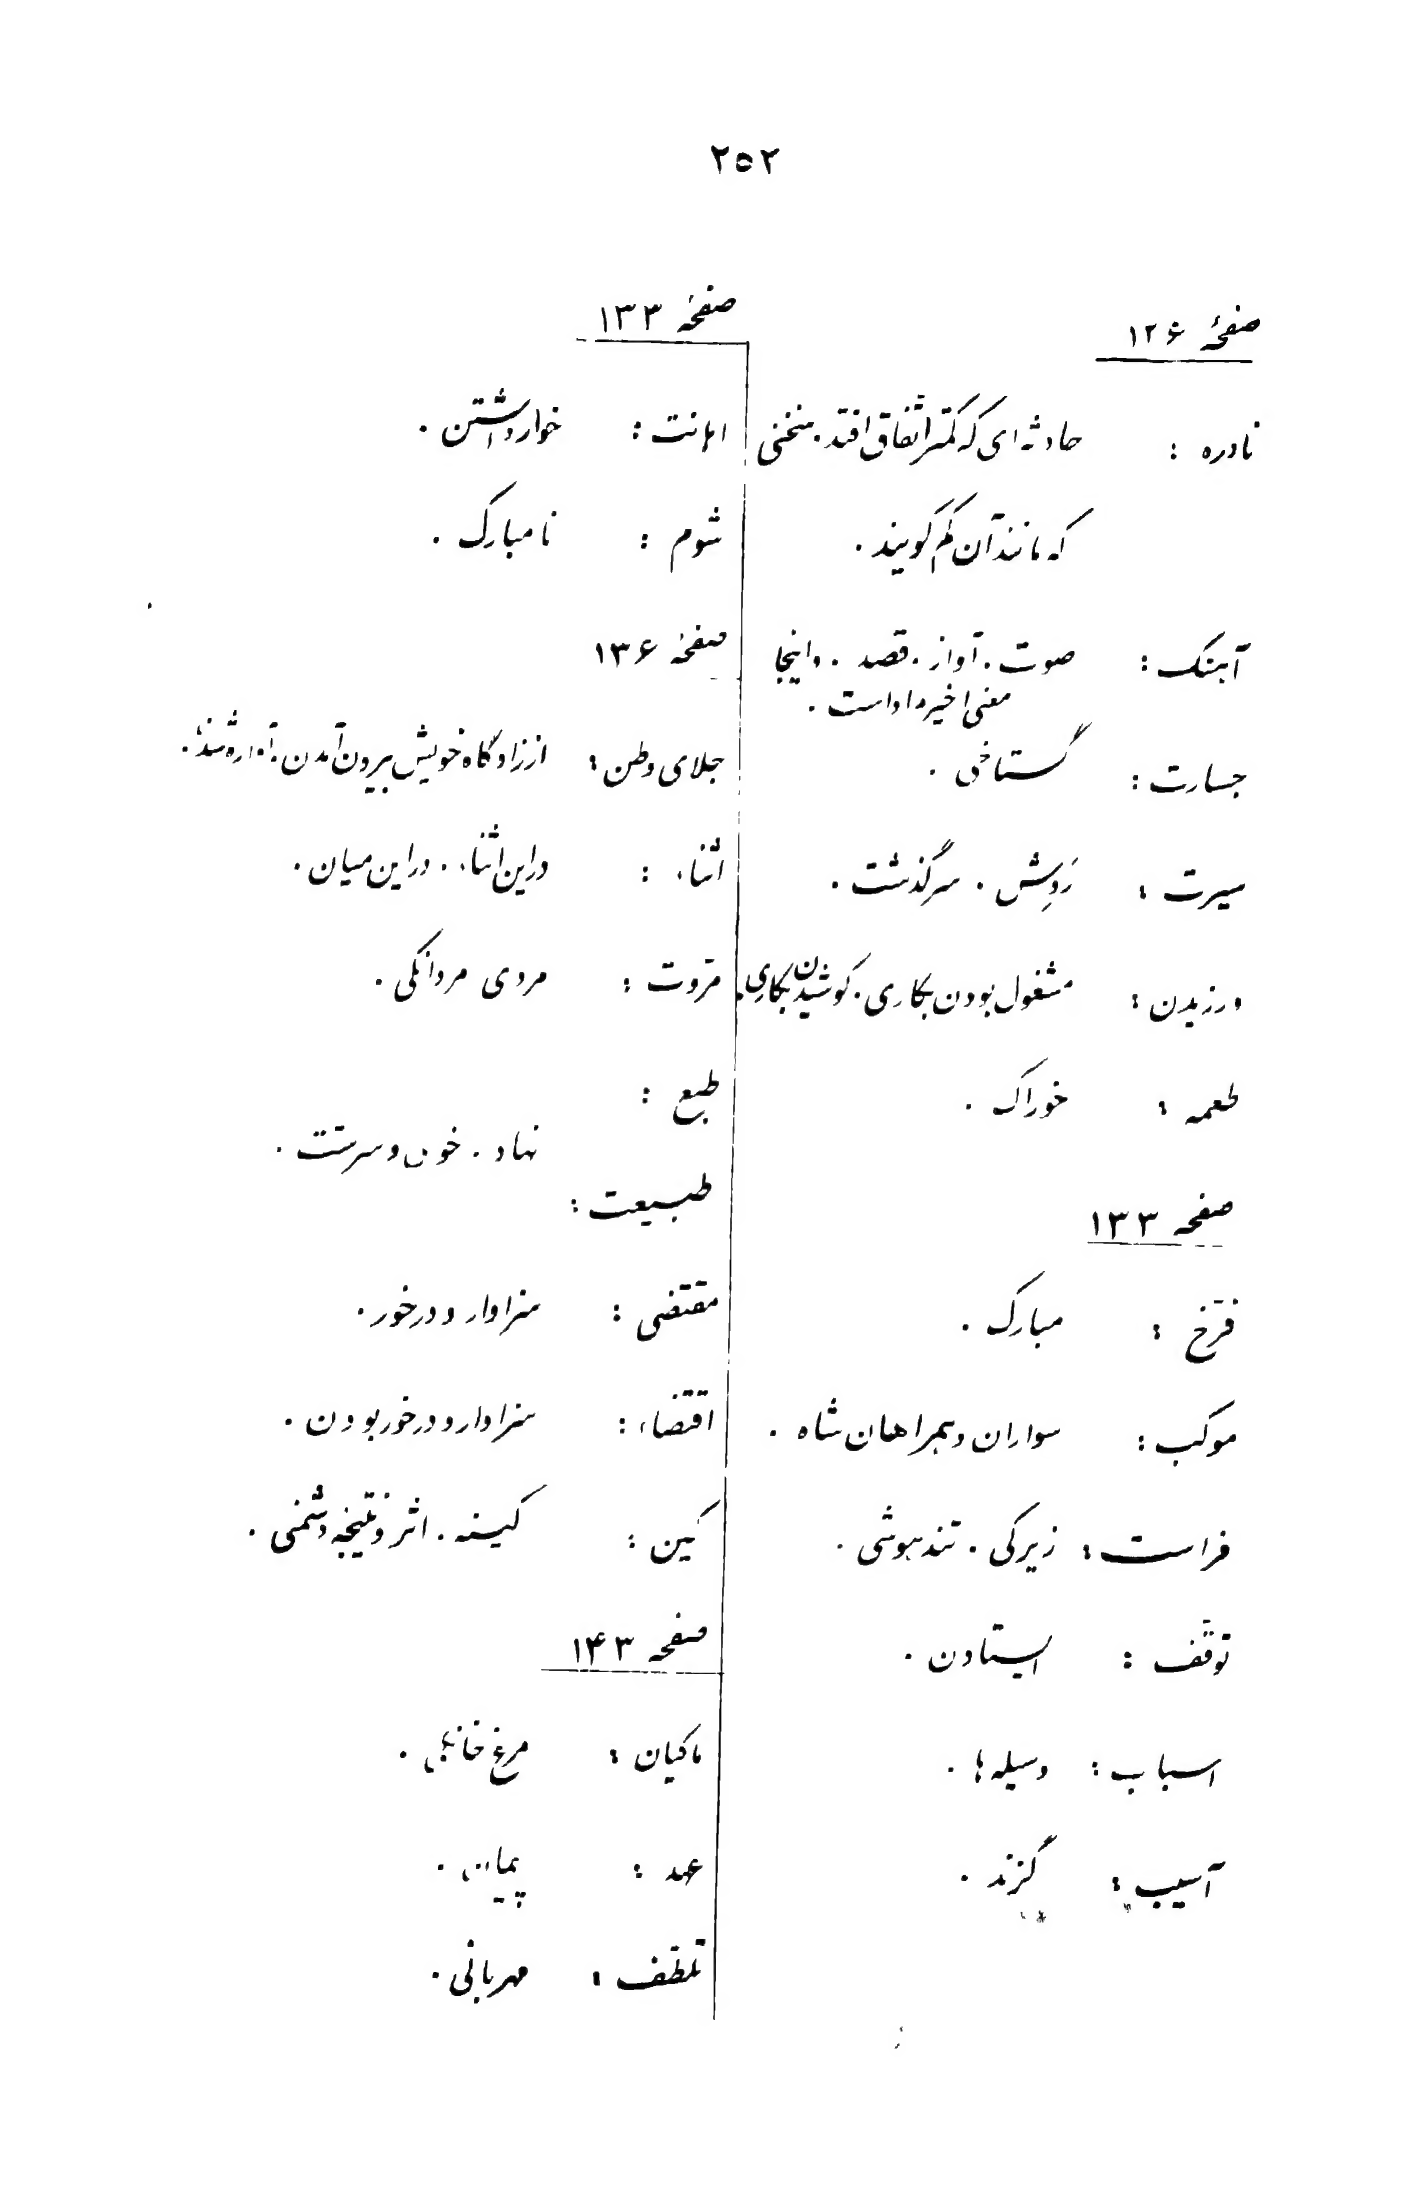 ۲۵۲
صفحهٔ ۱۲۶
نادره : حادثه‌ای که کمتر اتفاق افتد . سخنی
که مانند آن کم گویند .
آهنگ : صوت . آواز . قصد . و اینجا
معنی اخیر مراد است .
جسارت : گستاخی .
سیرت : رَوِش . سرگذشت .
ورزیدن : مشغول بودن بکاری . کوشیدن بکاری .
طعمه : خوراک .
صفحه ۱۳۳
فرّخ : مبارک .
موکب : سواران و همراهان شاه .
فراست : زیرکی . تند هوشی .
توقّف : ایستادن .
اسباب : وسیله ها .
آسیب : گزند .
صفحهٔ ۱۳۳
اهانت : خوار داشتن .
شوم : نا مبارک .
صفحهٔ ۱۳۶
جلای وطن : از زادگاه خویش بیرون آمدن . آواره شدن .
اثناء : در این اثناء . در این میان .
مروّت : مردی مردانگی .
طبع :
نهاد . خوی و سرشت .
طبیعت :
مقتضی : سزاوار و درخور .
اقتضاء : سزاوار و درخور بودن .
کین : کینه . اثر و نتیجه دشمنی .
صفحه ۱۴۳
ماکیان : مرغ خانگی .
عهد : پیمان .
تلطّف : مهربانی .